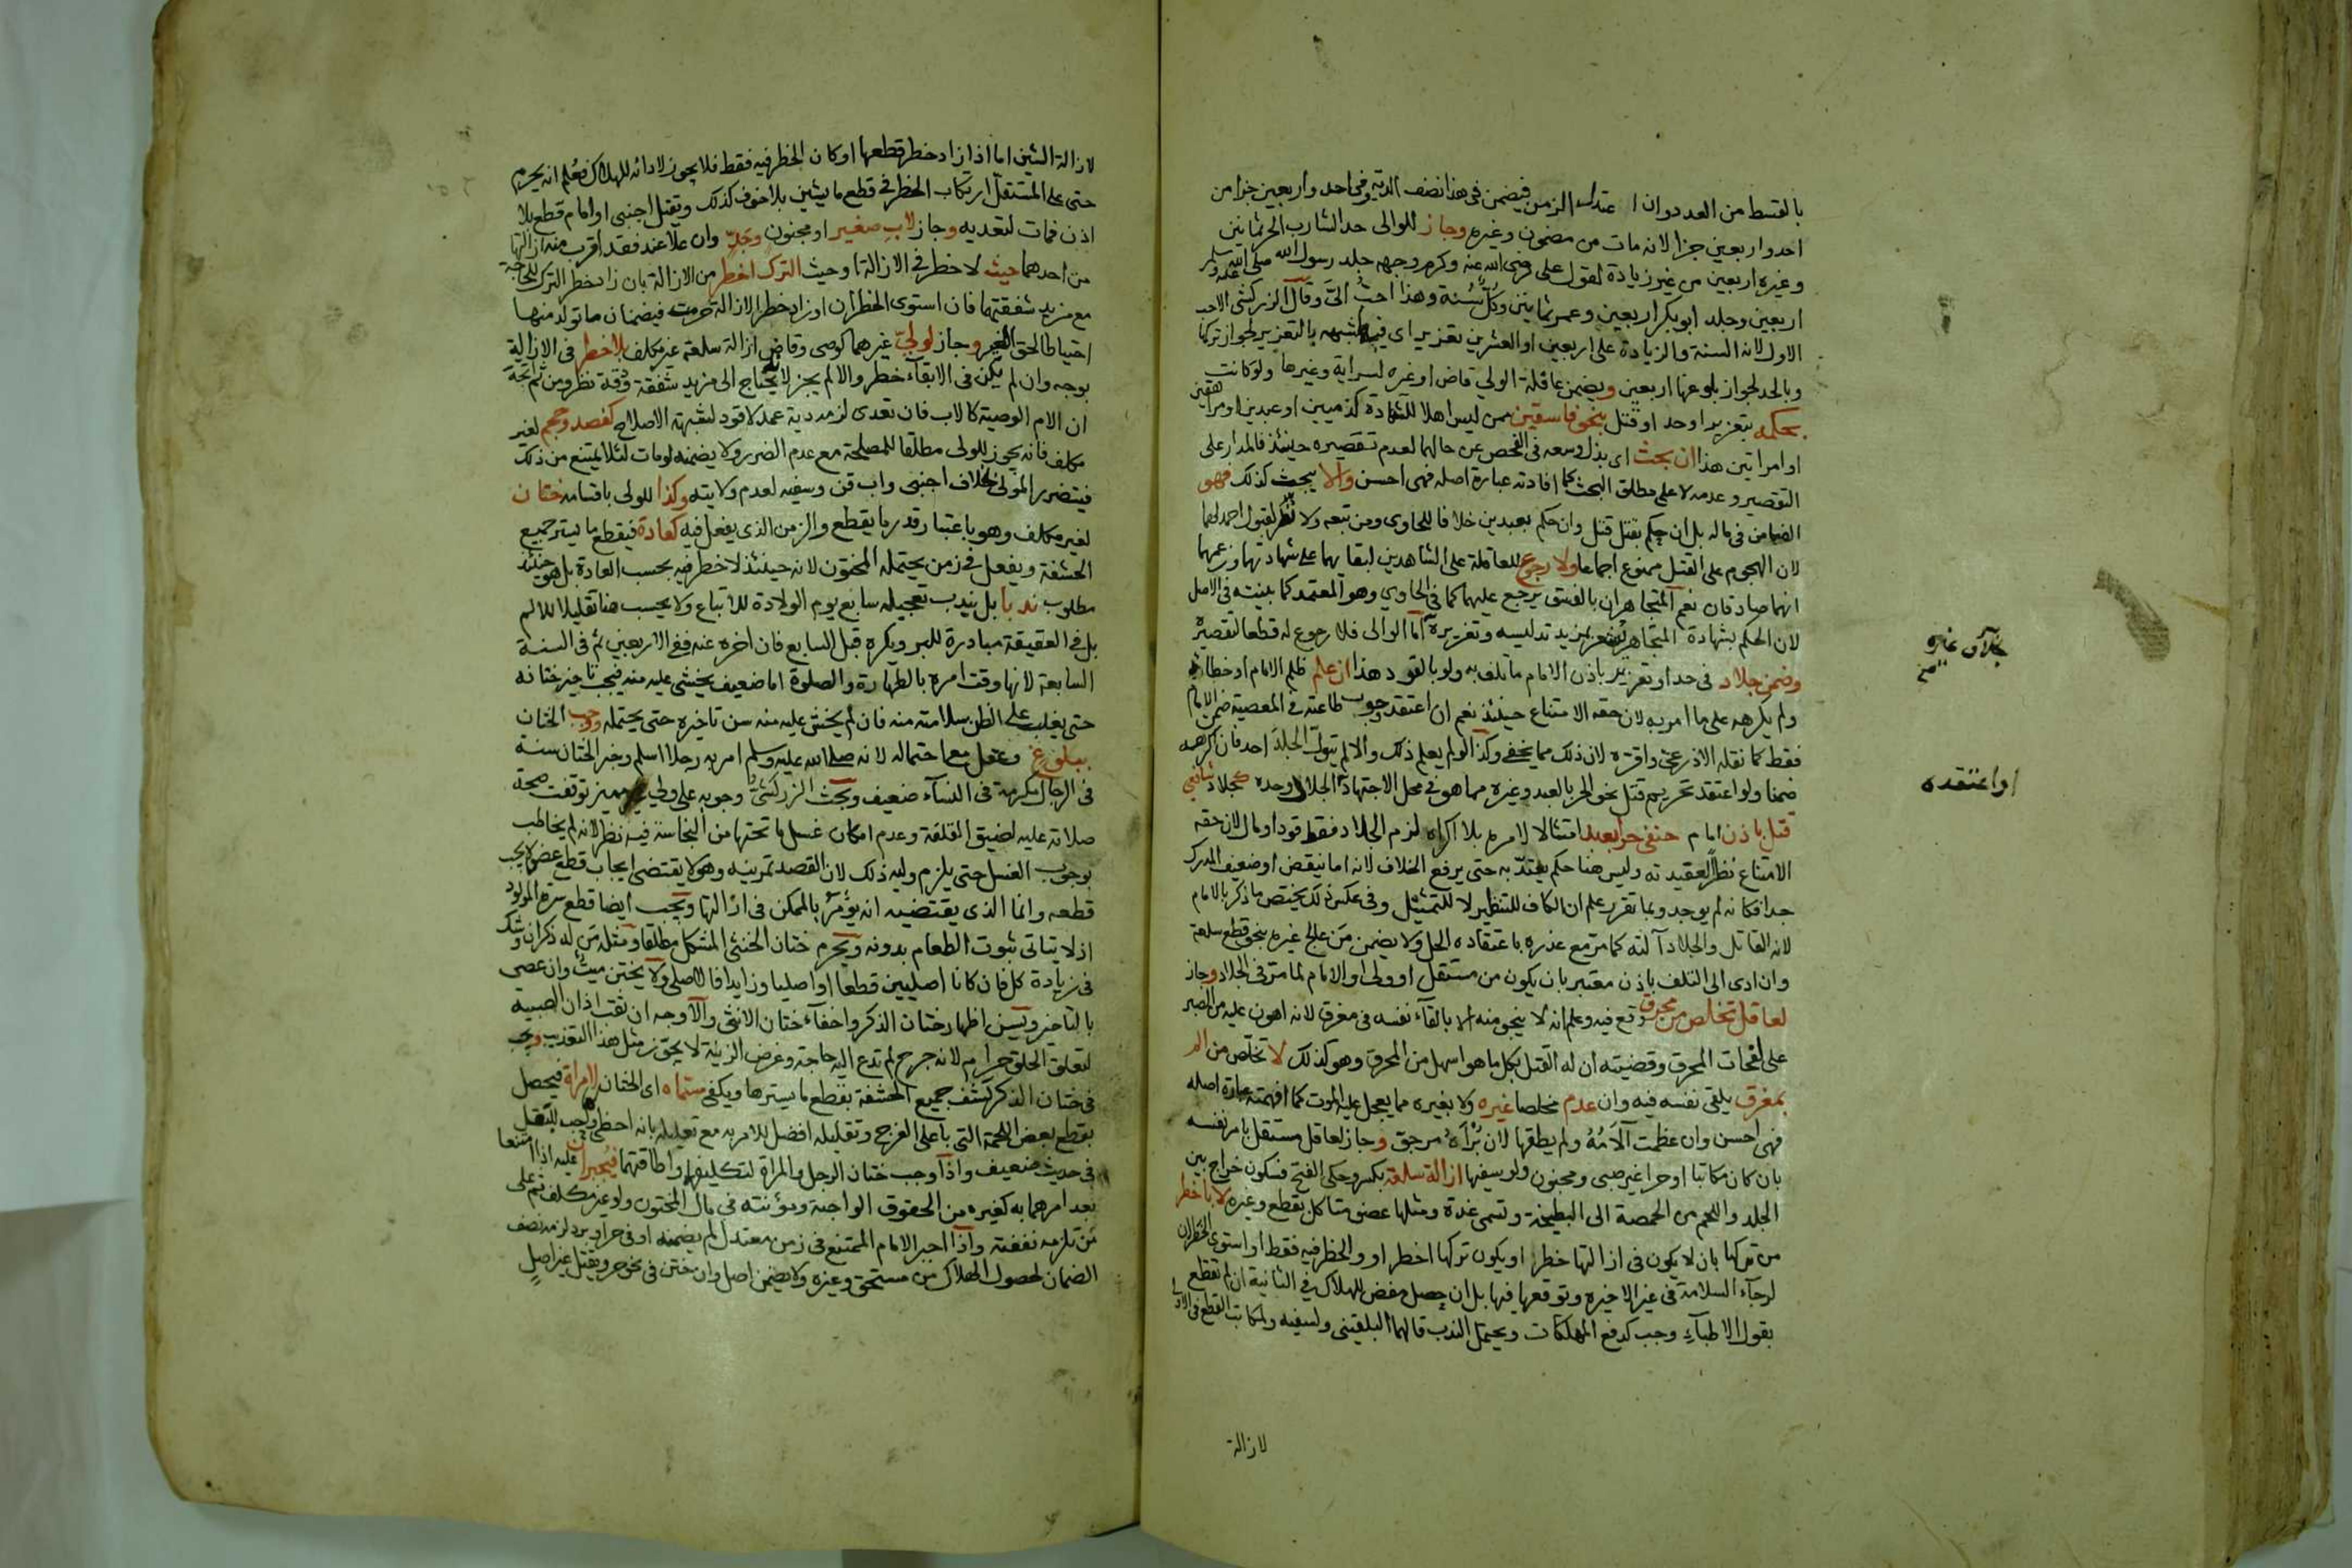 بالقسط من العدد وان اعتدل الزمن فيضمن في هذا نصف الدية وفي احد واربعين جزا من
احد واربعين جزا لانه مات من مضمون وغيره وجاز للوالى حد الشارب الحر ثمانين
وغيره اربعين من غير زيادة لقول على رضى الله عنه وكرم وجهه جلد رسول الله صلى الله عليه وسلم
اربعين وجلد ابو بكر اربعين وعمر ثمانين وكل سنة وهذا احب الى وقال الزركشى الاحب
الاول لانه السنة والزيادة على اربعين او العشرين تعزير اى فيها شبه بالتعزير لجواز تركها
وبالحد لجواز بلوغها اربعين ويضمن عاقلة الولي قاض او غيره لسراية وغيرها ولو كانت
بحكمه بتعزير او حد او قتل بنحو فاسقين ممن ليس اهلا للشهادة كذميين او عبدين او مراهقين
او امراتين هذا ان بحث اى بذل وسعه في الفحص عن حالهما لعدم تقصيره حينئذ فالمدار على
التقصير وعدمه لا على مطلق البحث كما افادته عبارة اصله فهى احسن والا يبحث كذلك فهو
الضمان في ماله بل ان حكم بقتل قتل وان حكم بعبدين خلافا للحاوى ومن تبعه ولا نظر لقبول احمد لهما
لان الهجوم على القتل ممنوع اجماعا ولا رجوع للعاقلة على الشاهدين لبقائهما على شهادتهما وزعمهما
انهما صادقان نعم المتجاهران بالفسق يرجع عليهما كما في الحاوي وهو المعتمد كما بينته في الاصل
لان الحكم بشهادة المتجاهر يشعر بمزيد تدليسه وتغريره اما الوالى فلا رجوع له قطعا لتقصيره
وضمن جلاد في حد او تعزير باذن الامام ما تلف به ولو بالقود هذا ان علم ظلم الامام او خطائه
ولم يكرهه على ما امر به لان حقه الامتناع حينئذ نعم ان اعتقد وجوب طاعته في المعصية ضمن الامام
فقط كما نقله الاذرعي واقره لان ذلك مما يخفى وكذا لو لم يعلم ذلك والا لم يتول الجلد احد فان اكرهه
ضمنا ولو اعتقد تحريم قتل نحو الحر بالعبد وغيره مما هو في محل الاجتهاد الجلاد وحده كجلاد شافعي
قتل باذن امام حنفى حرا بعبد امتثالا لامره بلا اكراه لزم الجلاد فقط قود او مال لان حقه
الامتناع نظرا لعقيدته وليس هنا حكم يعتد به حتى يرفع الخلاف لانه اما ينقض او ضعيف المدرك
جدا فكانه لم يوجد وبما تقرر علم ان الكاف للتنظير لا للتمثيل وفى عكس ذلك يختص ما ذكر بالامام
لانه القاتل والجلاد آلته كما مر مع عذره باعتقاده الحل ولا يضمن من عالج غيره بنحو قطع سلعة
وان ادى الى التلف باذن معتبر بان يكون من مستقل او ولى او الامام لما مر في الجلاد وجاز
لعاقل تخلص من محرق وقع فيه وعلم انه لا ينجو منه الا بالقاء نفسه في مغرق لانه اهون عليه من الصبر
على لفحات المحرق وقضيته ان له القتل بكل ما هو اسهل من المحرق وهو كذلك لا تخلص من الم
بمغرق يلقى نفسه فيه وان عدم مخلصا غيره ولا بغيره مما يعجل عليه الموت كما افهمته عبارة اصله
فهى احسن وان عظمت آلامه ولم يطقها لان برأه مرجو وجاز لعاقل مستقل بامر نفسه
بان كان مكاتبا او حرا غير صبى ومجنون ولو سفيها ازالة سلعة بكسر وحكى الفتح فسكون خراج بين
الجلد واللحم من الحمصة الى البطيخة وتسمى غدة ومثلها عضو متاكل بقطع وغيره لا باخطر
من تركها بان لا يكون في ازالتها خطر او يكون تركها اخطر او والخطر فيه فقط او استوى الخطران
لرجاء السلامة في غير الاخيرة وتوقعها فيها بل ان حصل مفض للهلاك في الثانية ان لم تقطع
بقول الاطباء وجب كدفع المهلكات ويحتمل الندب قالهما البلقينى ولسفيه ولمكاتب القطع في الاولى
بخلاف غيره
صح
او اعتقده
لازالة
لازالة الشين اما اذا زاد خطر قطعها او كان الخطر فيه فقط فلا يجوز لادائه للهلاك فعلم انه يحرم
حتى على المستقل ارتكاب الخطر في قطع ما يشين بلا خوف كذلك ويقتل اجنبى او امام قطع بلا
اذن فمات لتعديه وجاز لاب صغير او مجنون وجد وان علا عند فقد اقرب منه ازالتها
من احدهما حيث لا خطر في الازالة او حيث الترك اخطر من الازالة بان زاد خطر الترك للحاجة
مع مزيد شفقتهما فان استوى الخطران او زاد خطر الازالة حرمت فيضمنان ما تولد منها
احتياطا لحق الغير وجاز لولي غيرهما كوصى وقاض ازالة سلعة غير مكلف بلا خطر في الازالة
بوجه وان لم يكن في الابقاء خطر والا لم يجز لانه يحتاج الى مزيد شفقة ودقة نظر ومن ثم اتجه
ان الام الوصية كالاب فان تعدى لزمه دية عمد لا قود لشبهة الاصلاح كفصد وحجم لغير
مكلف فانه يجوز للولى مطلقا للمصلحة مع عدم الضرر ولا يضمنه لو مات لئلا يمتنع من ذلك
فيتضرر المولى بخلاف اجنبى واب قن وسفيه لعدم ولايته وكذا للولى باقسامه ختان
لغير مكلف وهو باعتبار قدر ما يقطع والزمن الذى يفعل فيه كعادة فيقطع ما يستر جميع
الحشفة ويفعل في زمن يحتمله المختون لانه حينئذ لا خطر فيه بحسب العادة بل هو حينئذ
مطلوب ندبا بل يندب تعجيله سابع يوم الولادة للاتباع ولا يحسب هنا تقليلا للالم
بل في العقيقة مبادرة للبر ويكره قبل السابع فان اخره عنه ففي الاربعين ثم في السنة
السابعة لانها وقت امره بالطهارة والصلوة اما ضعيف يخشى عليه منه فيجب تاخير ختانه
حتى يغلب على الظن سلامته منه فان لم يخش عليه منه سن تاخيره حتى يحتمله ووجب الختان
ببلوغ وعقل مع احتماله لانه صلى الله عليه وسلم امر به رجلا اسلم وخبر الختان سنة
في الرجال مكرمة في النساء ضعيف وبحث الزركشى وجوبه على ولي مميز توقفت صحة
صلاته عليه لضيق القلفة وعدم امكان غسل ما تحتها من النجاسة فيه نظر لانه لم يخاطب
بوجوب الغسل حتى يلزم وليه ذلك لان القصد تمرينه وهو لا يقتضى ايجاب قطع عضو لا يجب
قطعه وانما الذى يقتضيه انه يؤمر بالممكن في ازالتها ويجب ايضا قطع سرة المولود
اذ لا يتاتى ثبوت الطعام بدونه ويحرم ختان الخنثى المشكل مطلقا ومثله من له ذكران وشك
في زيادة كل فان كانا اصليين قطعا او اصليا وزايدا فالاصلى ولا يختن ميت وان عصى
بالتاخير ويسن اظهار ختان الذكر واخفاء ختان الانثى والاوجه ان ثقب اذان الصبية
لتعلق الحلق حرام لانه جرح لم تدع اليه حاجة وغرض الزينة لا يجوز مثل هذا التعذيب ويجب
في ختان الذكر كشف جميع الحشفة بقطع ما يسترها ويكفى مسماه اى الختان لامراة فيحصل
بقطع بعض اللحمة التى باعلى الفرج وتقليله افضل للامر به مع تعليله بانه احظى واحب للبعل
في حديث ضعيف واذا وجب ختان الرجل والمراة لتكليفهما واطاقتهما فيجبران عليه اذا امتنعا
بعد امرهما به كغيره من الحقوق الواجبة ومؤنته في مال المختون ولو غير مكلف ثم على
من تلزمه نفقته واذا اجبر الامام الممتنع في زمن معتدل لم يضمنه او في حر او برد لزمه نصف
الضمان لحصول الهلاك من مستحق وغيره ولا يضمن اصل وان ختن في نحو حر ويقتل غير اصل